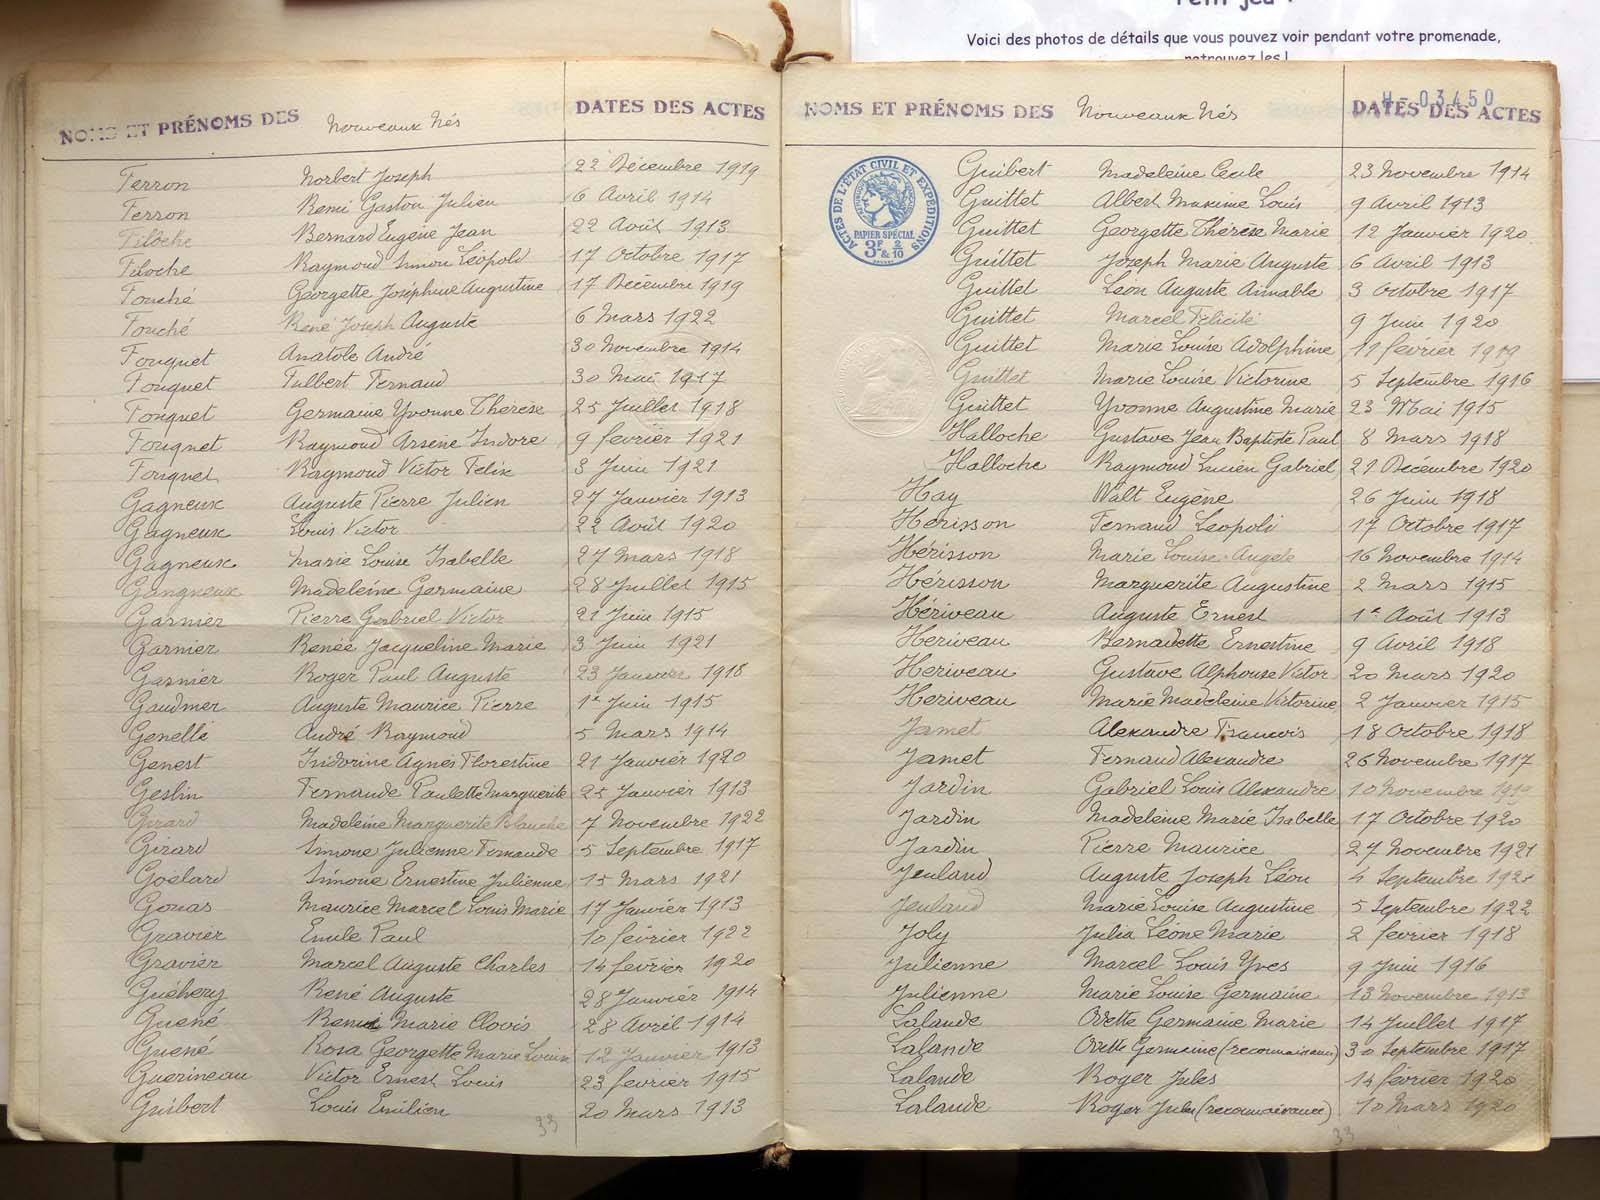 Petit jeu !
Voici des photos de détails que vous pouvez voir pendant votre promenade,
retrouvez les !
NOMS ET PRÉNOMS DES Nouveaux Nés DATES DES ACTES
Ferron Norbert Joseph 22 Décembre 1919
Ferron Remi Gaston Julien 6 Avril 1914
Filoche Bernard Eugène Jean 22 Août 1913
Filoche Raymond Simon Léopold 17 Octobre 1917
Fouché Georgette Joséphine Augustine 17 Décembre 1919
Fouché René Joseph Auguste 6 Mars 1922
Fouquet Anatole André 30 Novembre 1914
Fouquet Fulbert Fernand 30 Mai 1917
Fouquet Germaine Yvonne Thérèse 25 Juillet 1918
Fouquet Raymond Arsène Isidore 9 février 1921
Fouquet Raymond Victor Felix 3 Juin 1921
Gagneux Auguste Pierre Julien 27 Janvier 1913
Gagneux Louis Victor 22 Août 1920
Gagneux Marie Louise Isabelle 27 Mars 1918
Gangneux Madeleine Germaine 28 Juillet 1915
Garnier Pierre Gabriel Victor 21 Juin 1915
Garnier Renée Jacqueline Marie 3 Juin 1921
Gasnier Roger Paul Auguste 23 Janvier 1918
Gaudmer Auguste Maurice Pierre 1er Juin 1915
Genelle André Raymond 5 Mars 1914
Genest Isidorine Agnès Florestine 21 Janvier 1920
Geslin Fernande Paulette Marguerite 25 Janvier 1913
Girard Madeleine Marguerite Blanche 7 Novembre 1922
Girard Simone Julienne Fernande 5 Septembre 1917
Goëlard Simone Ernestine Julienne 15 Mars 1921
Gouas Maurice Marcel Louis Marie 17 Janvier 1913
Gravier Emile Paul 10 février 1922
Gravier Marcel Auguste Charles 14 février 1920
Guéhery René Auguste 28 Janvier 1914
Guené Remi Marie Clovis 28 Avril 1914
Guené Rosa Georgette Marie Louise 12 Janvier 1913
Guerineau Victor Ernest Louis 23 février 1915
Guibert Louis Emilien 20 Mars 1913
33
H-03450
NOMS ET PRÉNOMS DES Nouveaux Nés DATES DES ACTES
ACTES DE L'ÉTAT CIVIL ET EXPÉDITIONS
PAPIER SPÉCIAL
3F & 2/10
Guibert Madeleine Cecile 23 Novembre 1914
Guittet Albert Maxime Louis 9 Avril 1913
Guittet Georgette Thérèse Marie 12 Janvier 1920
Guittet Joseph Marie Auguste 6 Avril 1913
Guittet Léon Auguste Aimable 3 Octobre 1917
Guittet Marcel Félicité 9 Juin 1920
Guittet Marie Louise Adolphine 11 février 1919
Guittet Marie Louise Victorine 5 Septembre 1916
Guittet Yvonne Augustine Marie 23 Mai 1915
Halloche Gustave Jean Baptiste Paul 8 Mars 1918
Halloche Raymond Lucien Gabriel 21 Décembre 1920
Hay Walt Eugène 26 Juin 1918
Herisson Fernand Leopold 17 Octobre 1917
Hérisson Marie Louise Angele 16 Novembre 1914
Hérisson Marguerite Augustine 2 Mars 1915
Hériveau Auguste Ernest 1er Août 1913
Heriveau Bernadette Ernestine 9 Avril 1918
Heriveau Gustave Alphonse Victor 20 Mars 1920
Heriveau Marie Madeleine Victorine 2 Janvier 1915
Jamet Alexandre François 18 Octobre 1918
Jamet Fernand Alexandre 26 Novembre 1917
Jardin Gabriel Louis Alexandre 10 Novembre 1919
Jardin Madeleine Marie Isabelle 17 Octobre 1920
Jardin Pierre Maurice 27 Novembre 1921
Jeuland Auguste Joseph Léon 4 Septembre
Jeuland Marie Louise Augustine 5 Septembre 1922
Joly Julia Leone Marie 2 fevrier 1918
Julienne Marcel Louis Yves 9 Juin 1916
Julienne Marie Louise Germaine 13 Novembre 1913
Lalande Odette Germaine Marie 14 Juillet 1917
Lalande Odette Germaine (reconnaissance) 30 Septembre 1917
Lalande Roger Jules 14 février 1920
Lalande Roger Jules (reconnaissance) 10 Mars 1920
33